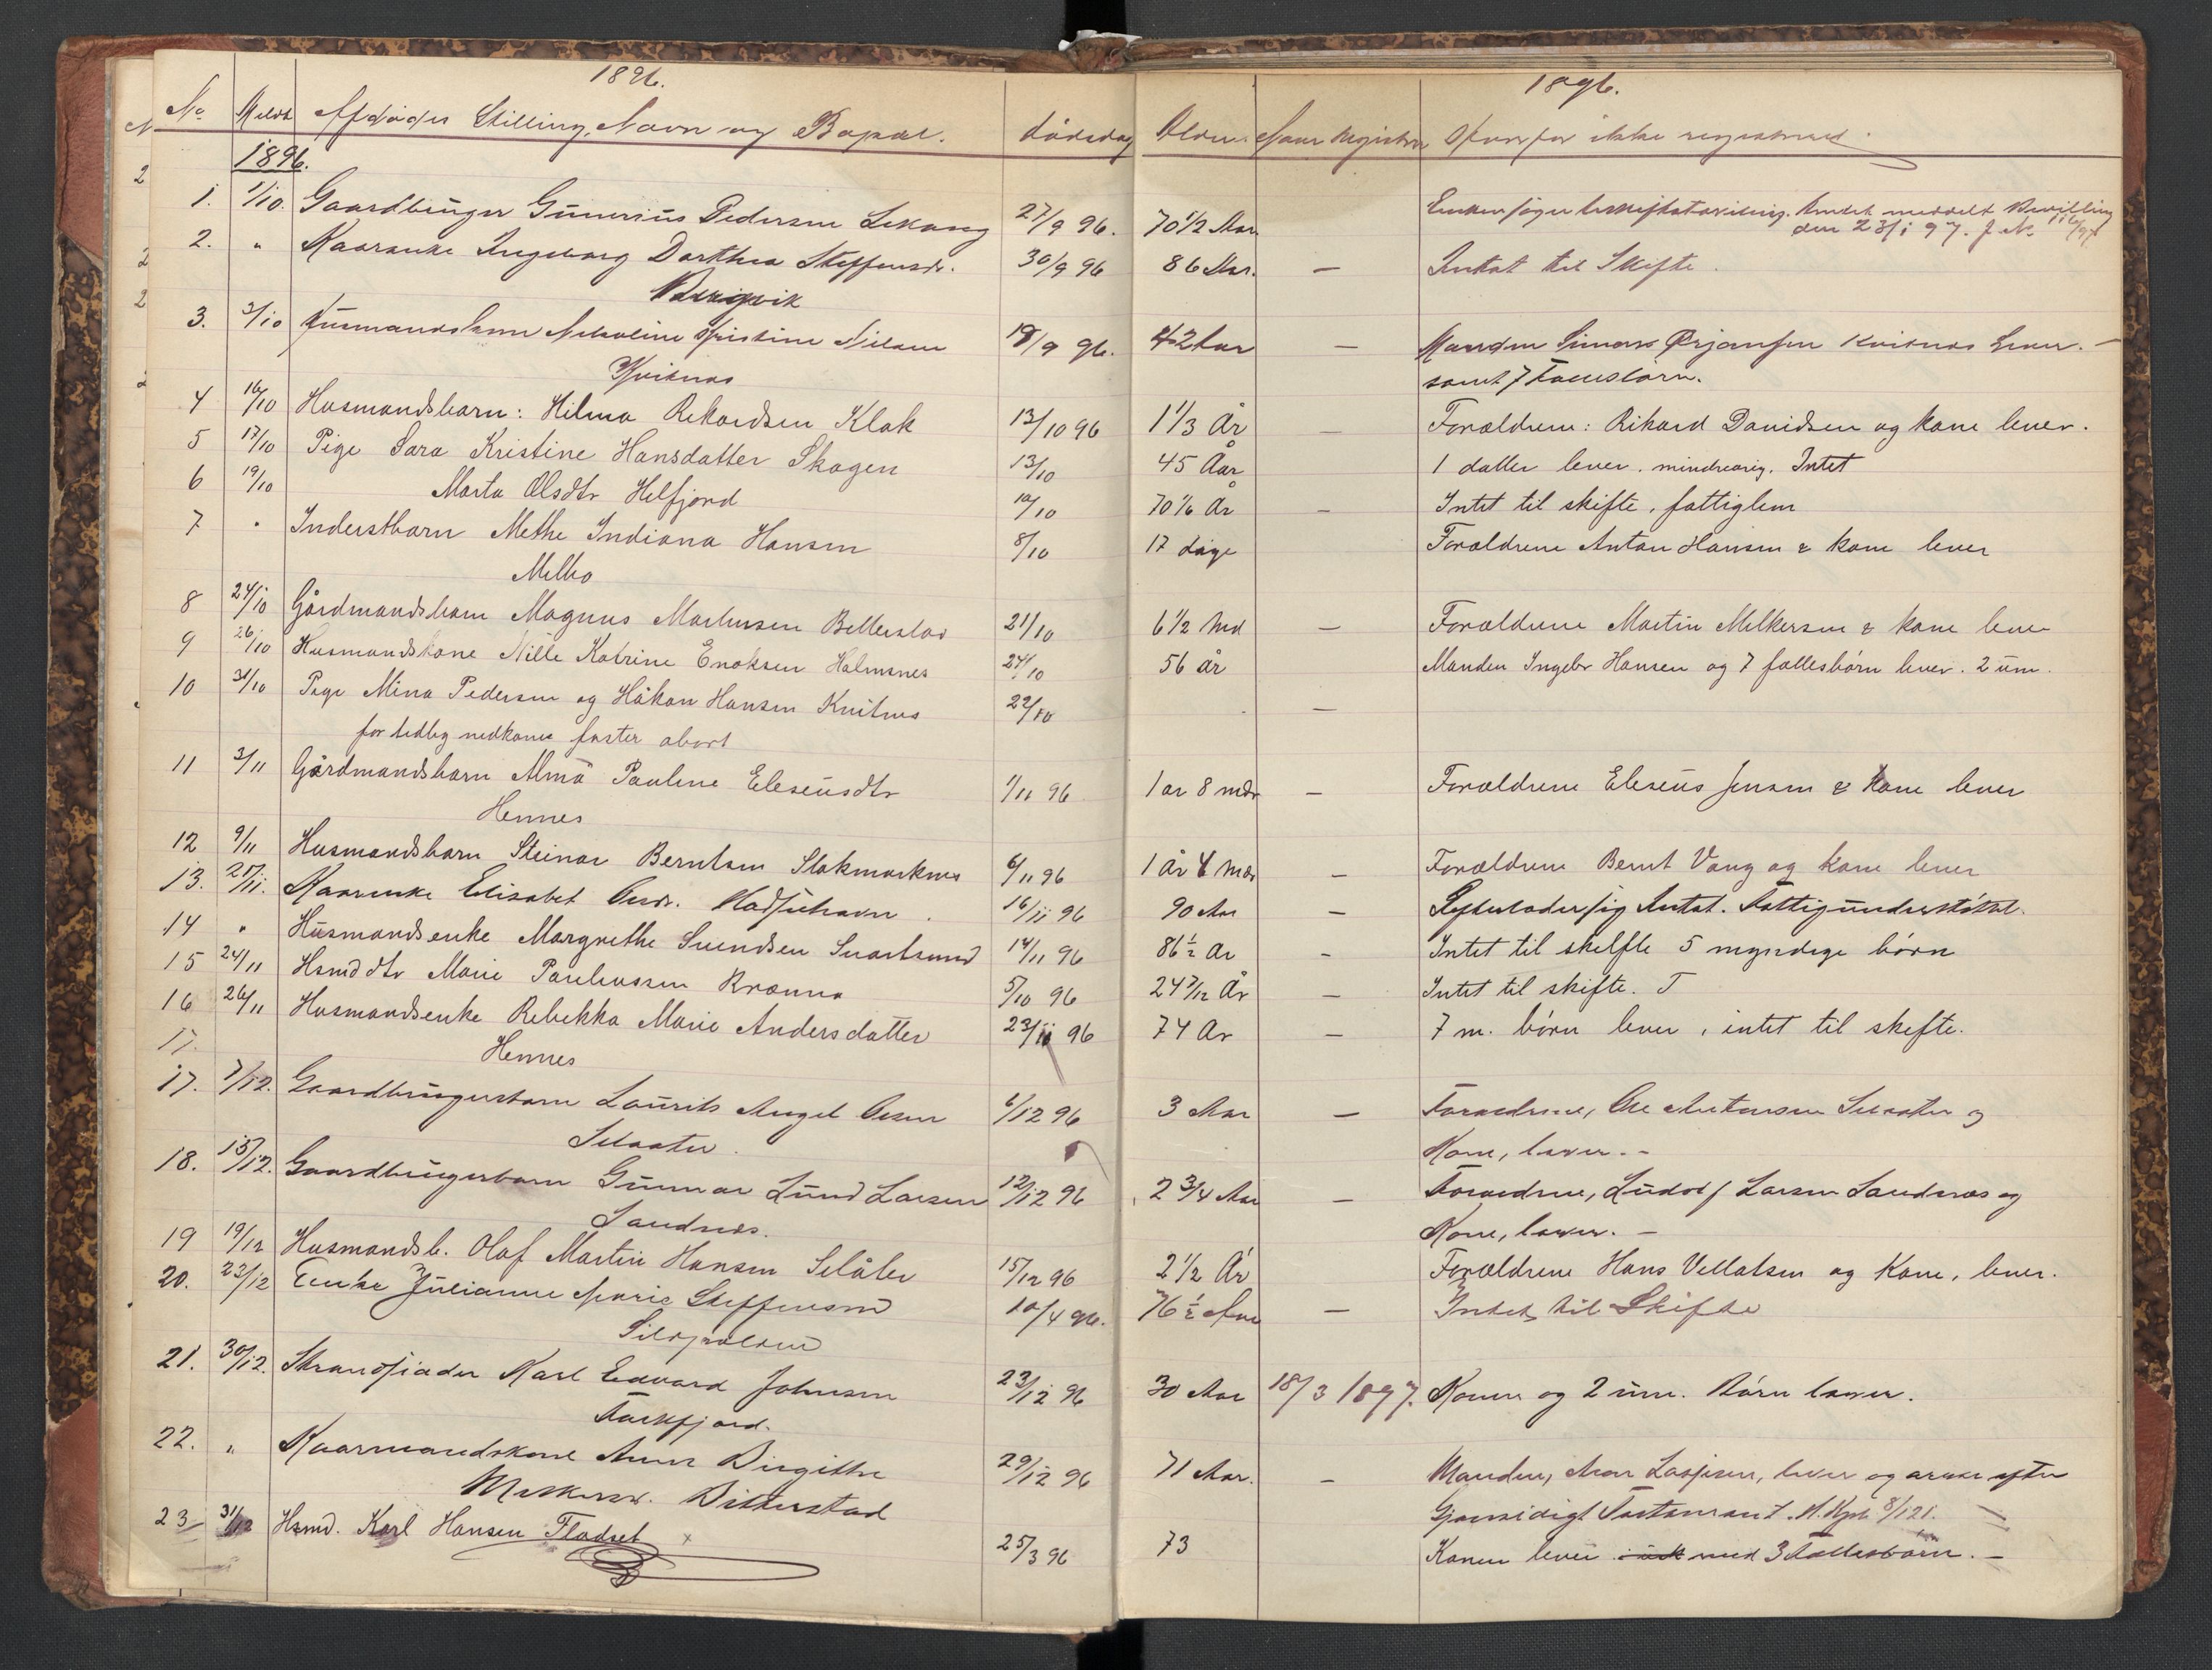 1896. 1896.
No Meldt Afdødes Stilling, Navn og Bopæl. Dødsdag Alder Naar registrer Hvorfor ikke registreret.
1896.
1. 1/10. Gaardbruger Gunerius Pedersen Lekang 27/9 96. 70 1/2 Aar Enken søger Uskiftetbevilling. Amtet meddelt Bevilling
den 23/1 97. J No 116/97
2. " Kaarenke Ingeborg Dorthea Steffensdr. 30/9 96 86 Aar. — Intet til Skifte.
3. 3/10 Husmandskone Nikoline Kristine Nilsen 18/9 96. 42 Aar — Manden Simon Ørjansen Kvitnes lever. —
Kvitnes samt 7 Fællesbørn.
4 16/10 Husmandsbarn: Hilma Rikardsen Klak 13/10 96 1 1/3 År — Forældrene: Rikard Davidsen og kone lever.
5 17/10 Pige Sara Kristine Hansdatter Skagen 13/10 45 Aar 1 datter lever. mindreårig. Intet
6 19/10 Marta Olsdtr Helfjord 10/10 70 1/6 År — Intet til skifte, fattiglem
7 " Inderstbarn Methe Indiana Hansen 8/10 17 dage Forældrene Anton Hansen & kone lever
Melbo
8 24/10 Gårdmandsbarn Magnus Martinsen Bitterstad 21/10 6 1/2 Md — Forældrene Martin Melkersen & kone lever
9 26/10 Husmandskone Nille Katrine Enoksen Holmsnes 24/10 56 år Manden Ingebr Hansen og 7 fællesbørn lever. 2 um.
10 31/10 Pige Mina Pedersen og Håkon Hansen Kvitnes 22/10 —
for tidlig nedkomne foster abort
11 3/11 Gårdmandsbarn Alma Pauline Eleseusdtr 1/11 96 1 ar 8 mdr — Forældrene Eleseus Jensen & kone lever
Hennes
12 9/11 Husmandsbarn Steinar Berntsen Stokmarknes 6/11 96 1 År 4 Mdr — Forældrene Bernt Vang og kone lever
13. 21/11. Kaarenke Elisabet Andr. Hadselhavn. 16/11 96 90 Aar — Efterlader sig Intet. Fattigunderstøttet.
14 " Husmandsenke Margrethe Svendsen Svartsund 14/11 96 86 1/2 Ar - Intet til skifte 5 myndige børn
15 24/11 Hsmddtr Marie Paulussen Krænna 5/10 96 24 7/12 År — Intet til skifte. T
16 26/11 Husmandsenke Rebekka Marie Andersdatter 23/11 96 74 Ar — 7 m. børn lever, intet til skifte.
17. Hennes
17. 7/12. Gaardbrugerbarn Laurits Angel Olsen 6/12 96 3 Aar — Forældrene, Ole Antonsen Selaater og
Selaater. Kone, lever. -
18. 15/12. Gaardbrugerbarn Gunnar Lund Larsen 12/12 96 2 3/4 Aar — Forældrene, Ludolf Larsen Sandnæs og
Sandnæs. Kone, lever. —
19 19/12 Husmandsb. Olaf Martin Hansen Selåter 15/12 96 2 1/2 År Forældrene Hans Vellatsen og Kone, lever.
20. 23/12 Enke Julianne Marie Steffensen 10/4 96. 76 1/2 Aar — Intet til Skifte
21. 30/12. Strandsidder Karl Edvard Johnsen 23/12 96 30 Aar 18/3 1897. Konen og 2 um. Børn lever.
22. " Kaarmandskone Anne Birgitte 29/12 96 71 Aar. — Manden, Aron lever og arver efter
Melkersd. Bitterstad Gjensidigt Testament. 8/121.
23 31/12 Hsmd. Karl Hansen Fladset 25/3 96 73 Konen lever med 3 Fællesbørn. —